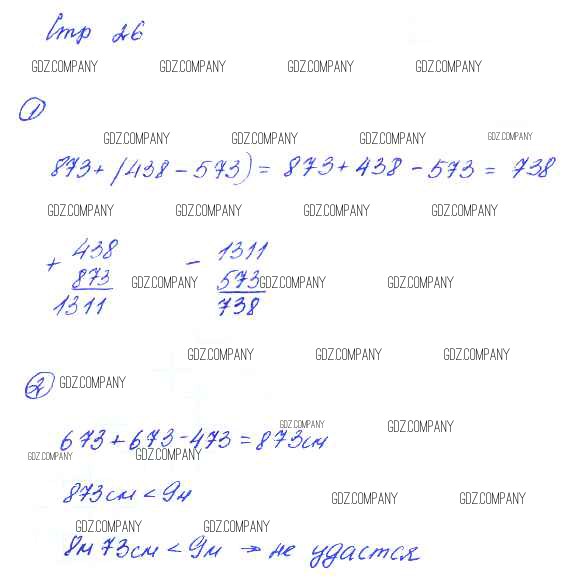 Стр 26
GDZ.COMPANY GDZ.COMPANY GDZ.COMPANY GDZ.COMPANY
1
GDZ.COMPANY GDZ.COMPANY GDZ.COMPANY GDZ.COMPANY
873+(438-573)=873+438-573=738
GDZ.COMPANY GDZ.COMPANY GDZ.COMPANY GDZ.COMPANY
+ 438 - 1311
873 573
GDZ.COMPANY GDZ.COMPANY GDZ.COMPANY
1311 738
GDZ.COMPANY GDZ.COMPANY GDZ.COMPANY
2 GDZ.COMPANY
GDZ.COMPANY GDZ.COMPANY
673+673-473=873см
GDZ.COMPANY GDZ.COMPANY
873см<9м
GDZ.COMPANY GDZ.COMPANY
GDZ.COMPANY GDZ.COMPANY
8м 73см<9м → не удастся